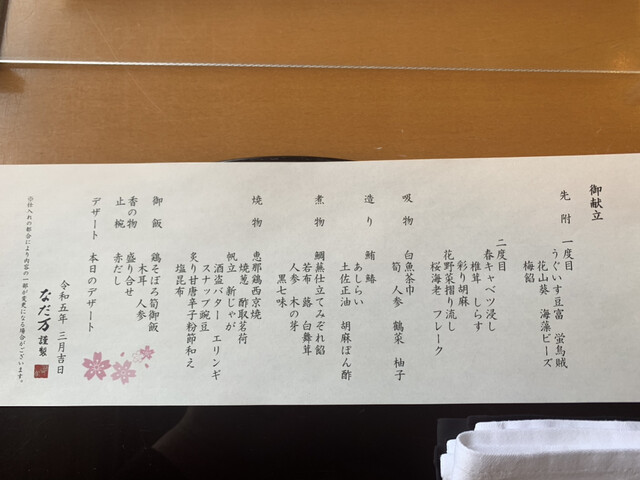 御献立
先附 一度目
うぐいす豆富 蛍烏賊
花山葵 海藻ビーズ
梅餡
二度目
春キャベツ浸し
椎茸 しらす
彩り胡麻
花野菜摺り流し
桜海老 フレーク
吸物 白魚茶巾
筍 人参 鶴菜 柚子
造り 鮪 鰆
あしらい
土佐正油 胡麻ぽん酢
煮物 鯛蕪仕立てみぞれ餡
若布 蕗 白舞茸
人参 木の芽
黒七味
焼物 恵那鶏西京焼
焼葱 酢取茗荷
帆立 新じゃが
酒盗バター エリンギ
スナップ豌豆
炙り甘唐辛子粉節和え
塩昆布
御飯 鶏そぼろ筍御飯
木耳 人参
香の物 盛り合せ
止椀 赤だし
デザート 本日のデザート
令和五年 三月吉日
なだ万 謹製
※仕入れの都合により内容の一部が変更になる場合がございます。